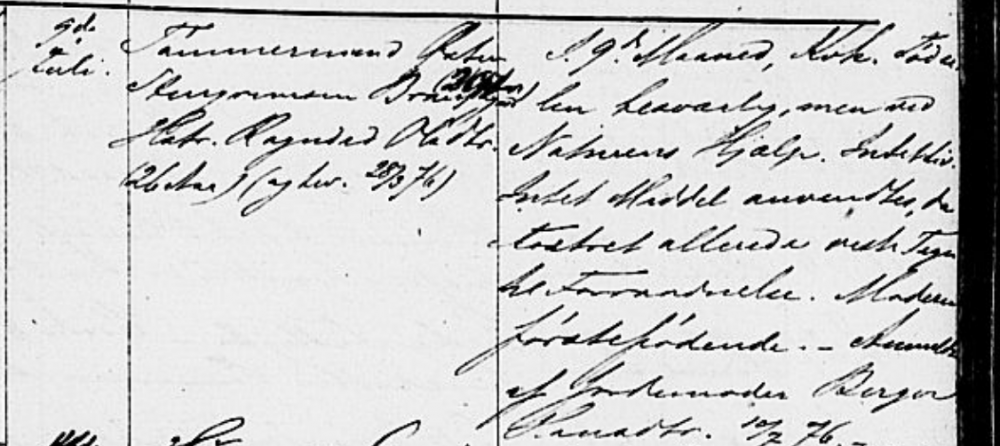 9de
Juli.
Tømmermand Peder
Stengrimsen
Hstr. Ragnhild Olsdtr.
(26 Aar) (agtev. 28/3 76)
I 9de Maaned, Kvk. Fødse
len besværlig, men ved
Naturens Hjælp. Intet Liv.
Intet Middel anvendtes, da
Fostret allerede viste Tegn
til Forraadnelse. Moderen
førstefødende. – Anmeldt
af Jordemoder Berger
10/7 76. –